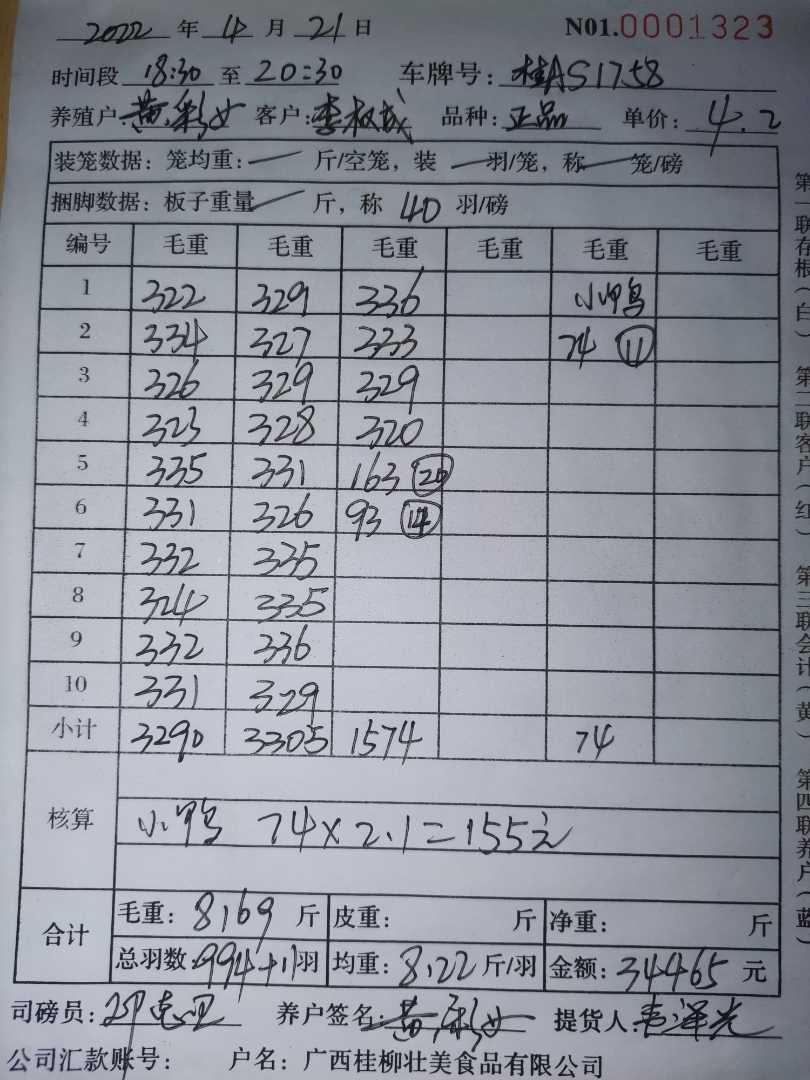 2022 年 4 月 21 日 N01.0001323
时间段 18:30 至 20:30 车牌号: 桂AS1758
养殖户: 黄彩女 客户: 李权成 品种: 正品 单价: 4.2
装笼数据: 笼均重: 一 斤/空笼, 装 一 羽/笼, 称 一 笼/磅
捆脚数据: 板子重量 一 斤, 称 40 羽/磅
编号 毛重 毛重 毛重 毛重 毛重 毛重
1 322 329 336 小鸭
2 334 327 333 74 ⑪
3 326 329 329
4 323 328 320
5 335 331 163 ⑳
6 331 326 93 ⑭
7 332 335
8 324 335
9 332 336
10 331 329
小计 3290 3305 1574 74
核算 小鸭 74×2.1=155元
合计 毛重: 8169 斤 皮重: 斤 净重: 斤
总羽数: 994+11羽 均重: 8.22 斤/羽 金额: 34465 元
司磅员: 养户签名: 黄彩女 提货人: 韦泽光
公司汇款账号: 户名: 广西桂柳壮美食品有限公司
第一联存根(白) 第二联客户(红) 第三联会计(黄) 第四联养户(蓝)